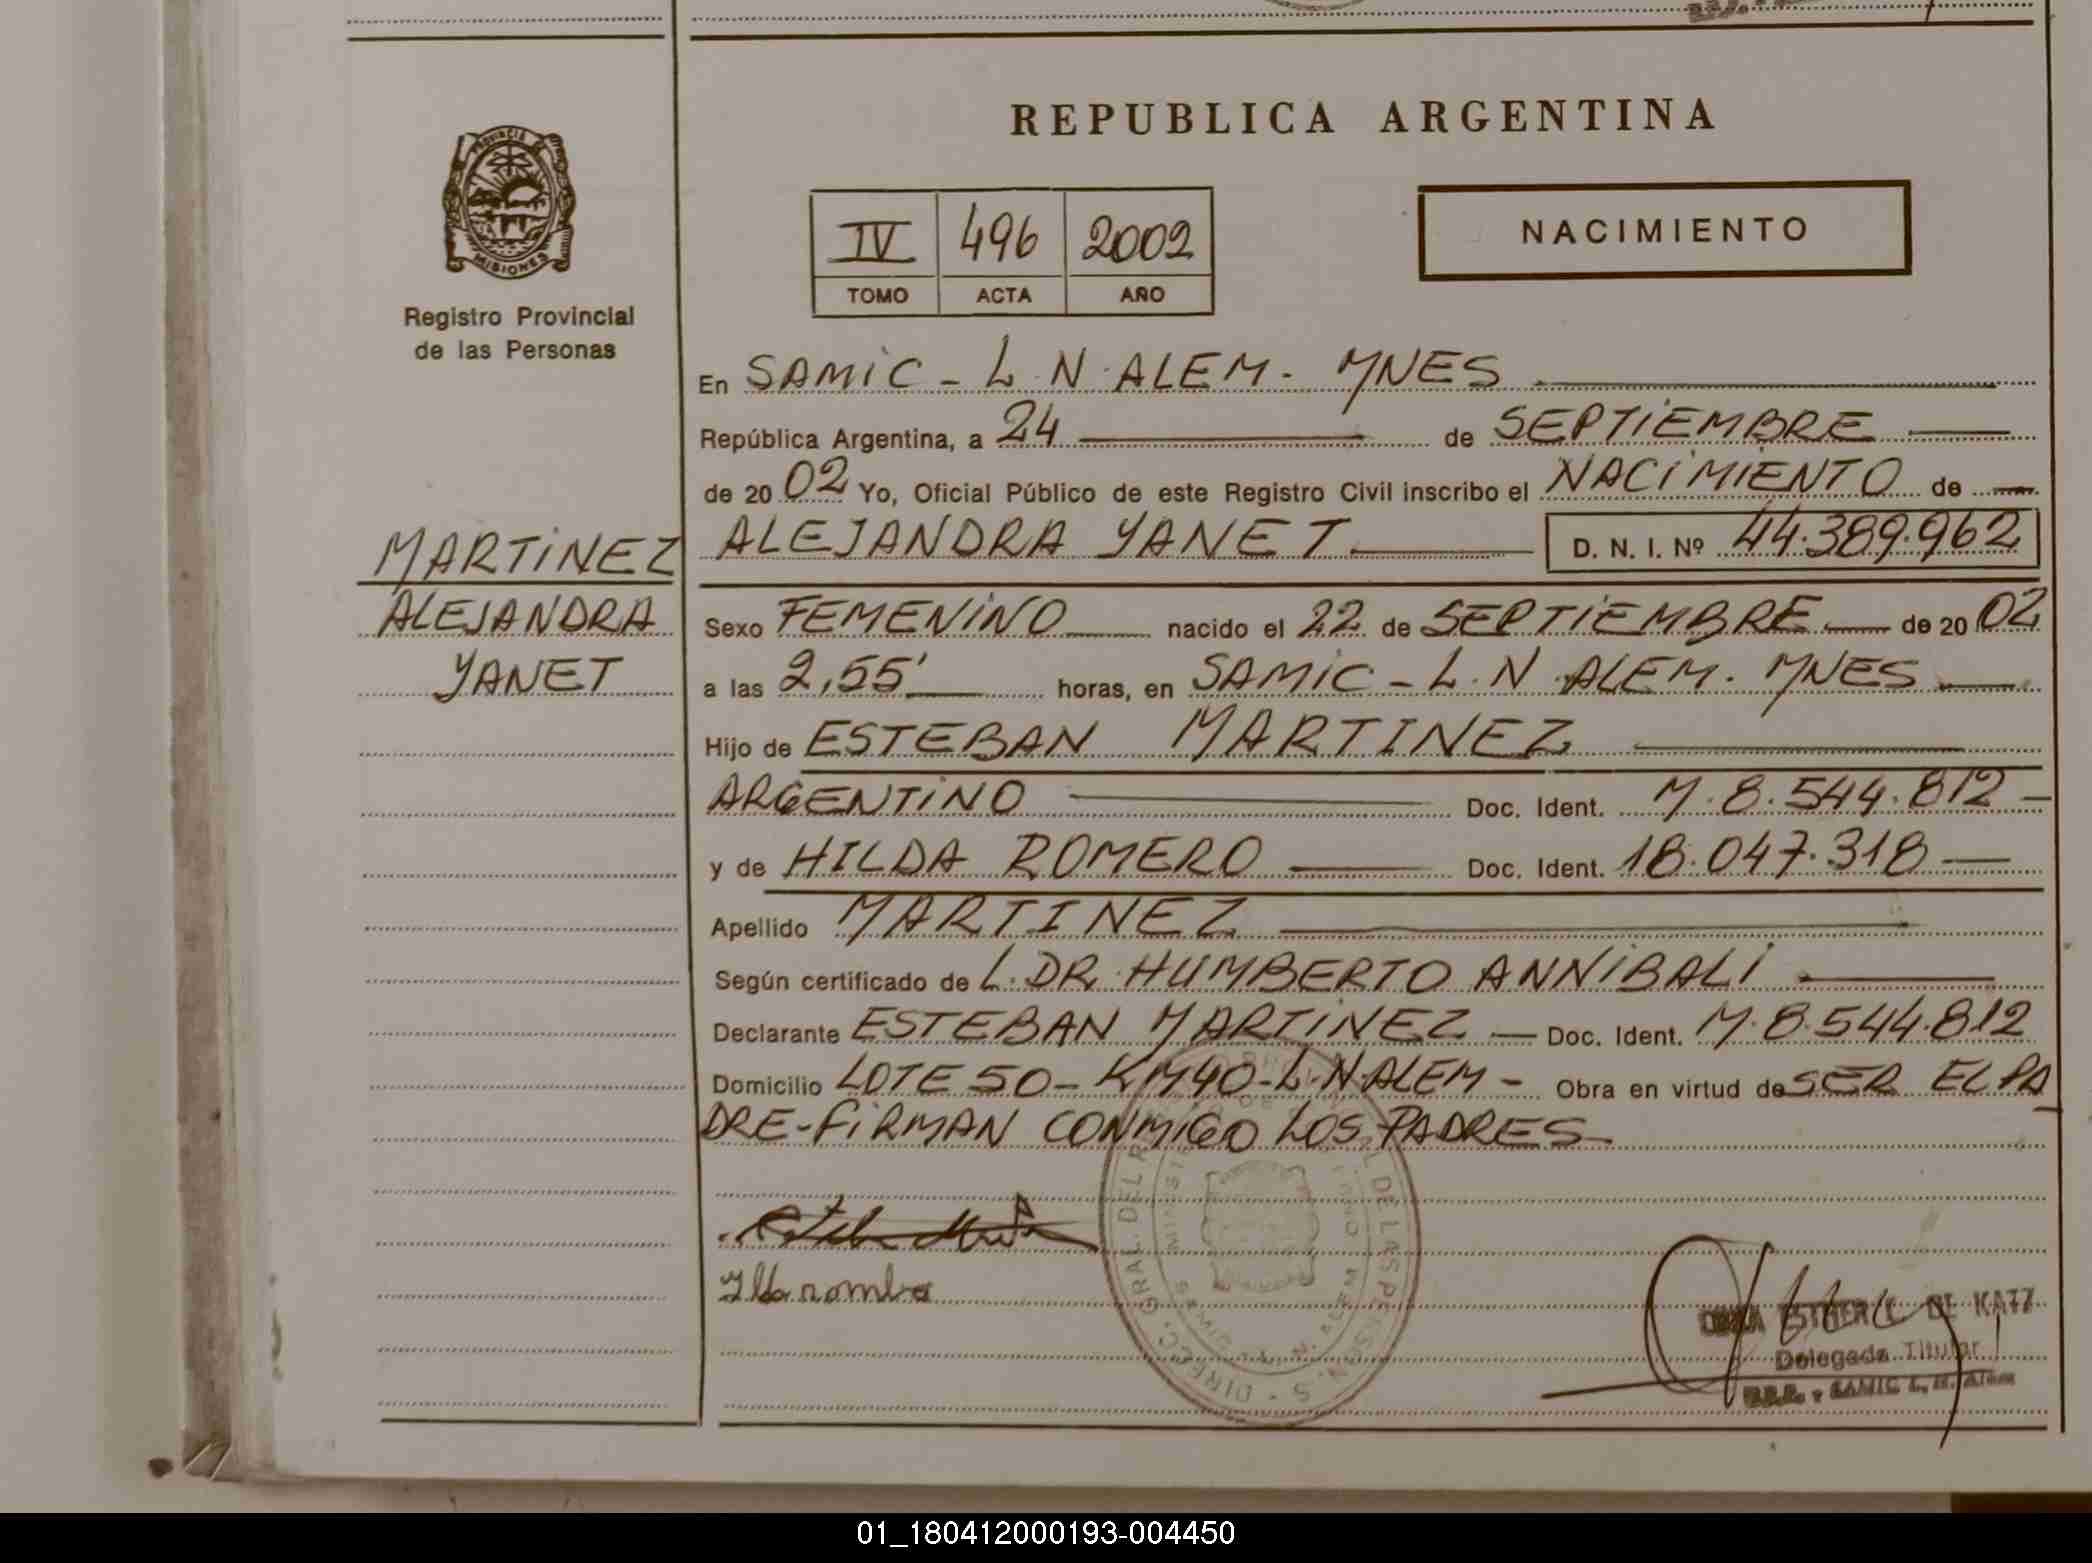 REPUBLICA ARGENTINA
PROVINCIA DE
MISIONES
Registro Provincial
de las Personas
IV 496 2002
TOMO ACTA AÑO
NACIMIENTO
En SAMIC - L. N. ALEM. MNES
República Argentina, a 24 de SEPTIEMBRE
de 20 02 Yo, Oficial Público de este Registro Civil inscribo el NACIMIENTO de
ALEJANDRA YANET D. N. I. Nº 44.389.962
MARTINEZ
ALEJANDRA
YANET
Sexo FEMENINO nacido el 22 de SEPTIEMBRE de 20 02
a las 2,55' horas, en SAMIC - L. N. ALEM. MNES
Hijo de ESTEBAN MARTINEZ
ARGENTINO Doc. Ident. M. 8.544.812
y de HILDA ROMERO Doc. Ident. 18.047.318
Apellido MARTINEZ
Según certificado de L. DR. HUMBERTO ANNIBALI
Declarante ESTEBAN MARTINEZ Doc. Ident. M. 8.544.812
Domicilio LOTE 50 - KM 40 - L. N. ALEM - Obra en virtud de SER EL PA
DRE - FIRMAN CONMIGO LOS PADRES
ESTHER DE KATZ
Delegada Titular
SAMIC L. N. Alem
01_180412000193-004450